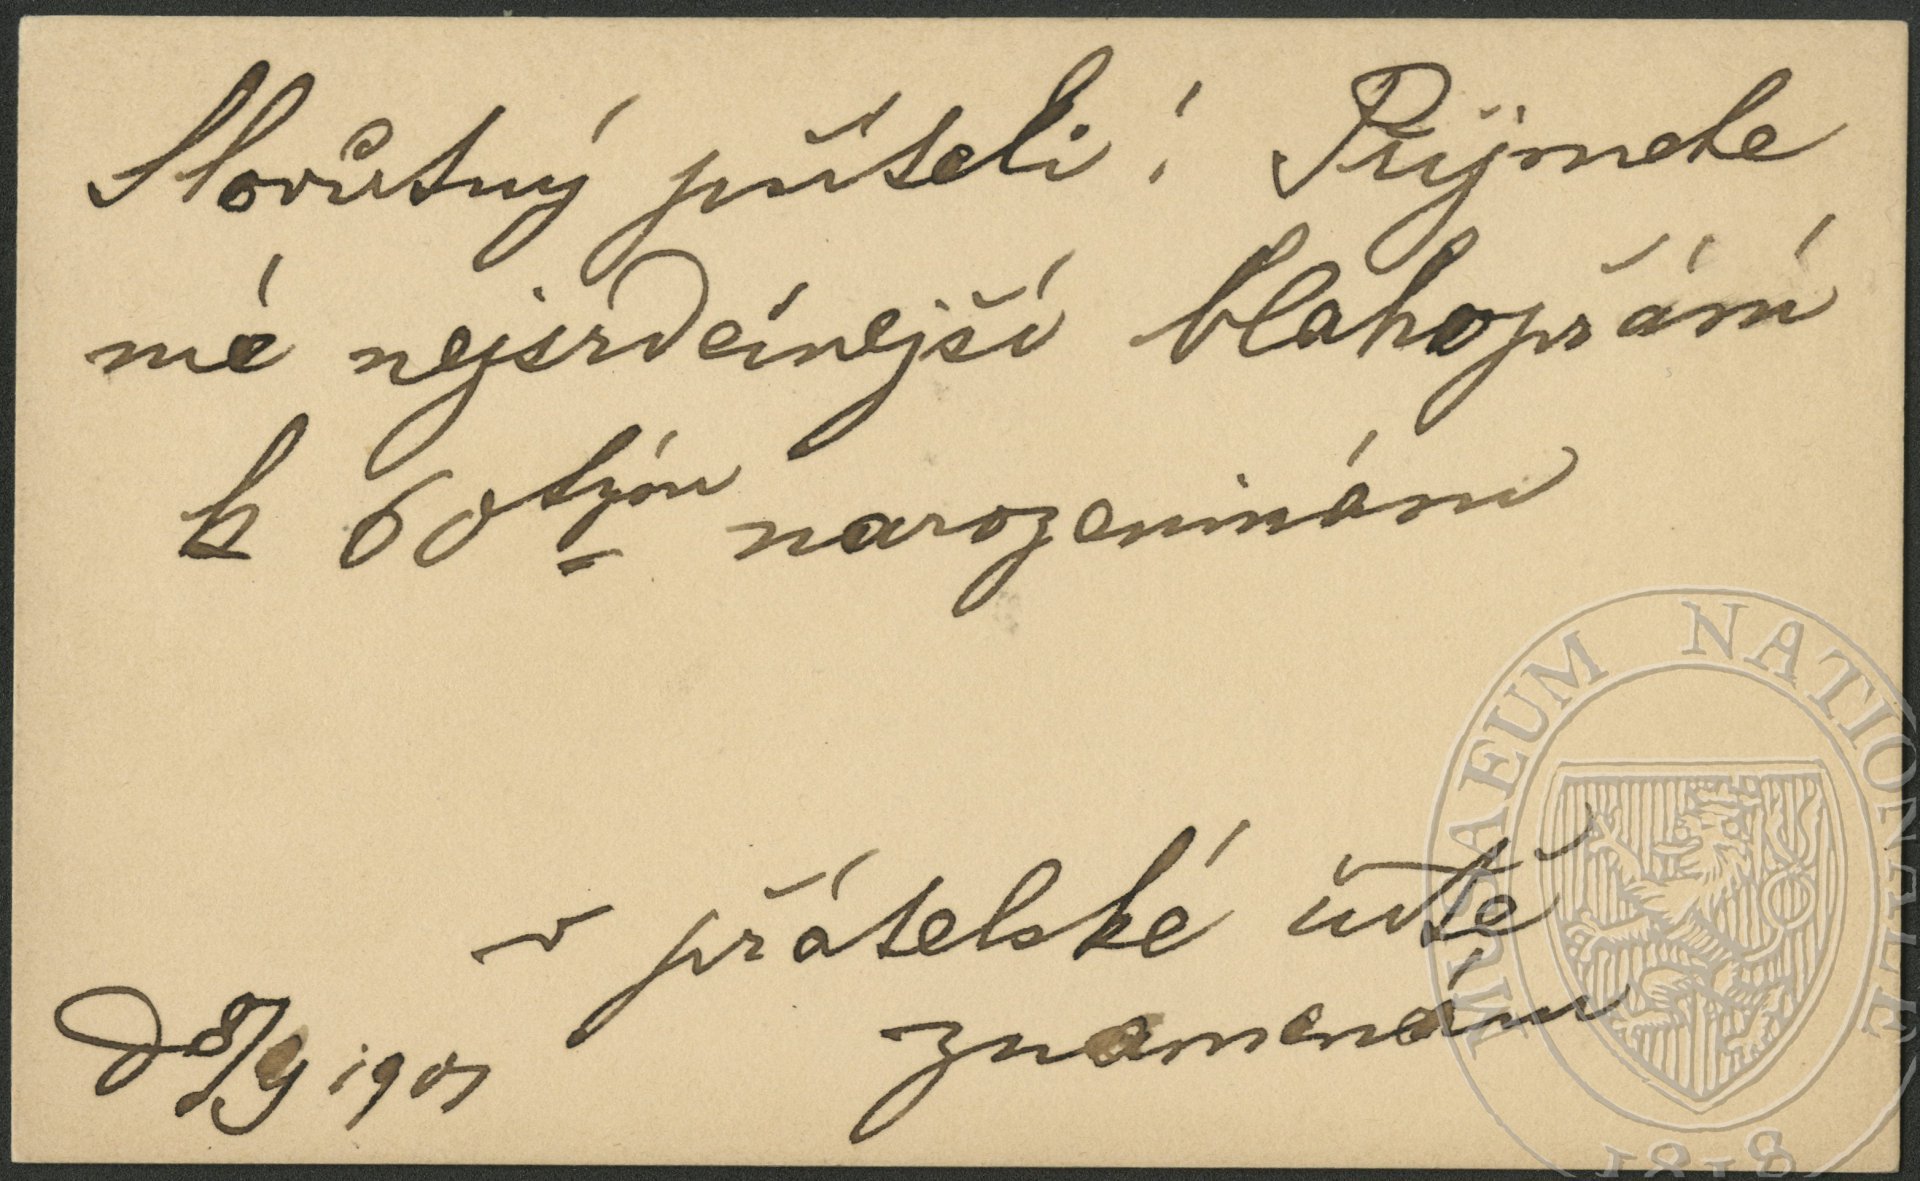 Slovůtný příteli! Přijměte
mé nejsrdečnejší blahopřání
k 60tým narozeninám
v přátelské úctě
znamenám
d 8/9 1901
MUSAEUM NATIONALE
1818